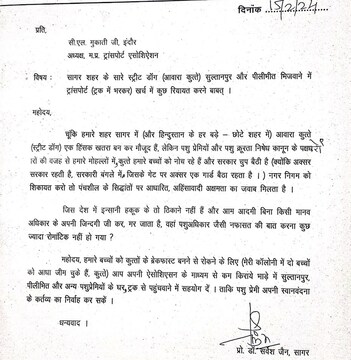 दिनांक 15/2/24
प्रति,
सी.एल. मुकाती जी, इंदौर
अध्यक्ष, म.प्र. ट्रांसपोर्ट एसोशिऐशन
विषय : सागर शहर के सारे स्ट्रीट डॉग (आवारा कुत्ते) सुल्तानपुर और पीलीभीत भिजवाने में
ट्रांसपोर्ट (ट्रक में भरकर) खर्च में कुछ रियायत करने बाबत् ।
महोदय,
चूंकि हमारे शहर सागर में (और हिन्दुस्तान के हर बड़े – छोटे शहर में) आवारा कुत्ते
(स्ट्रीट डॉग) एक हिंसक खतरा बन कर मौजूद हैं, लेकिन पशु प्रेमियों और पशु क्रूरता निषेध कानून के पक्षधरों
की वजह से हमारे मोहल्लों में, कुत्ते हमारे बच्चों को नोंच रहे हैं और सरकार चुप बैठी है (क्योंकि अक्सर
सरकार रहती है, सरकारी बंगले में, जिसके गेट पर अक्सर एक गार्ड बैठा रहता है । ) नगर निगम को
शिकायत करो तो पंचशील के सिद्धांतों पर आधारित, अहिंसावादी अक्षमता का जवाब मिलता है ।
जिस देश में इन्सानी हकूक के तो ठिकाने नहीं हैं और आम आदमी बिना किसी मानव
अधिकार के अपनी जिन्दगी जी कर, मर जाता है, वहां पशुअधिकार जैसी नफासत की बात करना कुछ
ज्यादा रोमांटिक नहीं हो गया ?
महोदय, हमारे बच्चों को कुत्तों के ब्रेकफास्ट बनने से रोकने के लिए (मेरी कॉलोनी में दो बच्चों
को आधा जीम चुके हैं, कुत्ते) आप अपनी ऐसोशिएसन के माध्यम से कम किराये भाड़े में सुल्तानपुर,
पीलीभीत और अन्य पशुप्रेमियों के घर, ट्रक से पहुंचवाने में सहयोग दें । ताकि पशु प्रेमी अपनी स्वानवंदना
के कर्तव्य का निर्वाह कर सकें ।
धन्यवाद ।
प्रो. डॉ. सर्वेश जैन, सागर